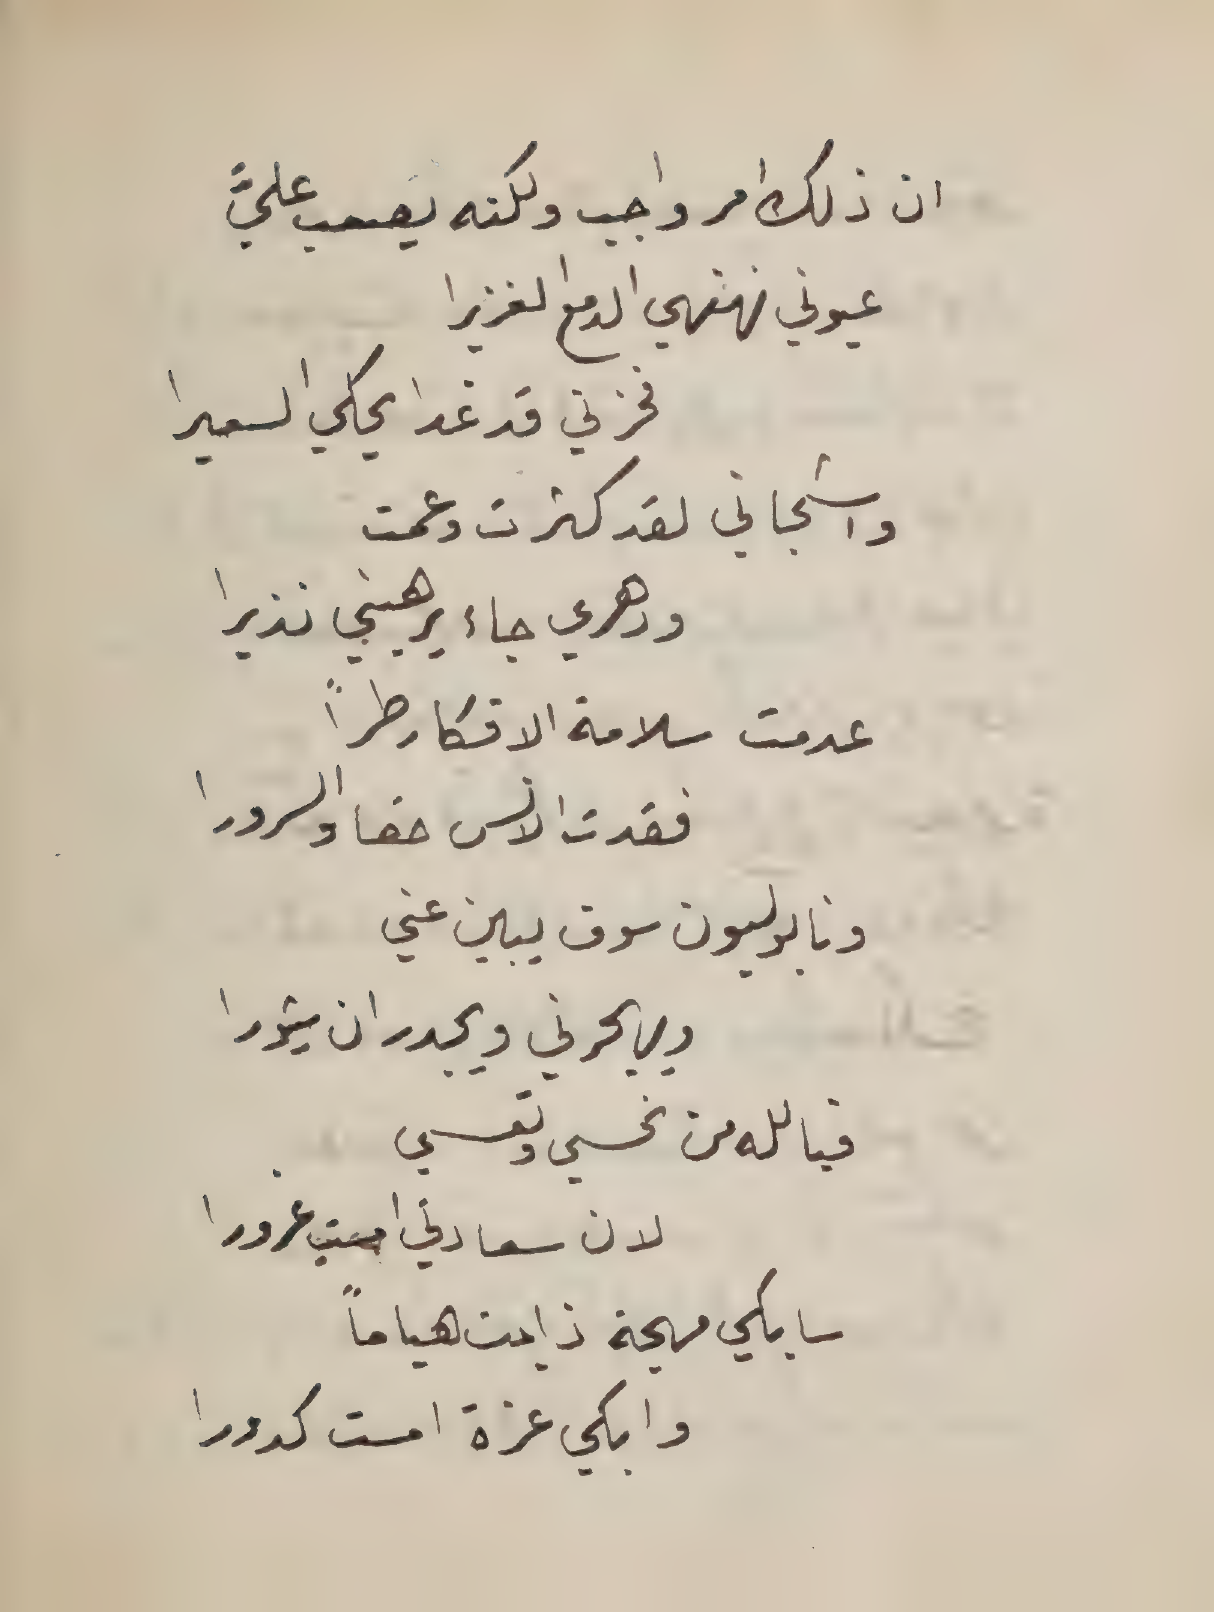 ان ذلك امر واجب ولكنه يصعب عليَّ
عيوني نهنهي الدمع الغزيرا
فحزني قد غدا يحكي السعيرا
واشجاني لقد كثرت وعمت
ودهري جاء يرهبني نذيرا
عدمت سلامة الافكار طراً
فقدت الانس حقا والسرورا
ونابوليون سوف يبين عني
ويهجرني ويجدر ان يثورا
فيا لله من نحسي وتعسي
لان سعادتي امست غرورا
سابكي مهجة ذابت هياماً
وابكي عزة امست كدورا